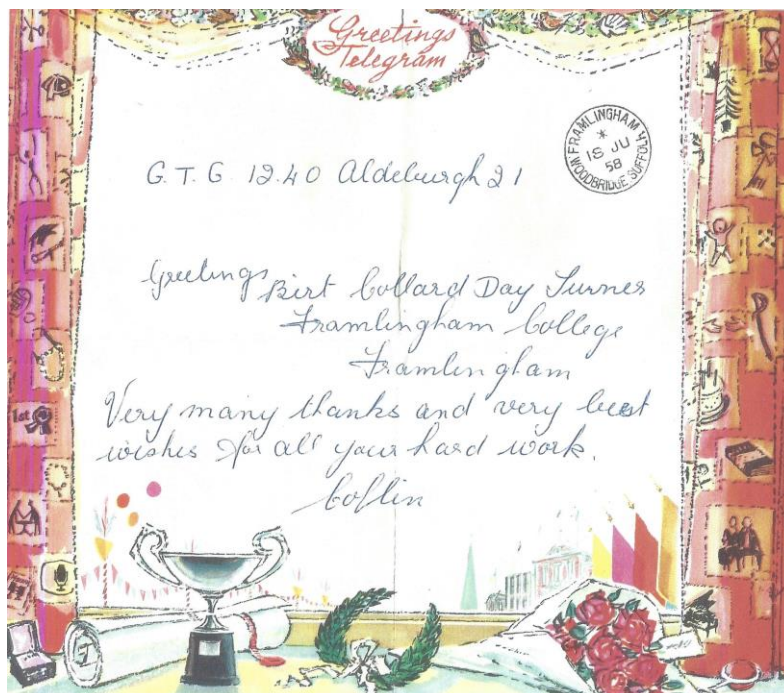 Greetings
Telegram
FRAMLINGHAM
*
18 JU
58
WOODBRIDGE SUFFOLK
G.T.G 12.40 Aldeburgh 21
Greetings Birt Collard Day Turner
Framlingham College
Framlingham
Very many thanks and very best
wishes for all your hard work.
1st